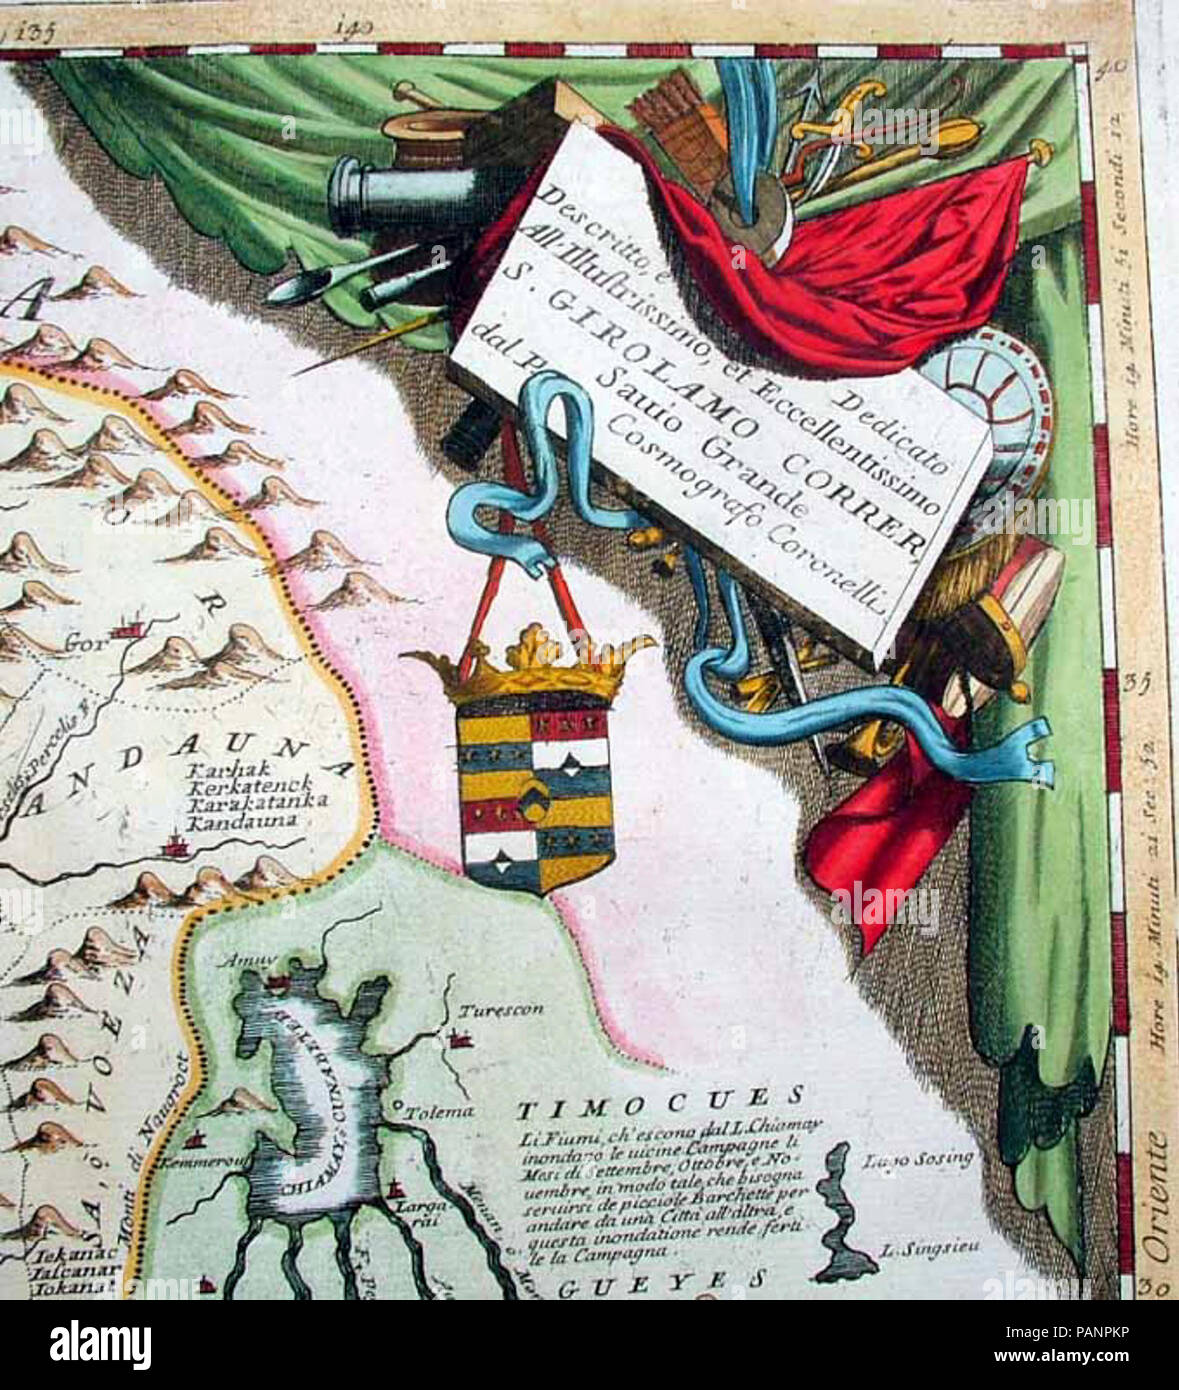 135
140
40
Descritto, e Dedicato
All'Illustrissimo, et Eccellentissimo
S. GIROLAMO CORRER,
Sauio Grande
dal P. Cosmografo Coronelli.
Hore 19 Minuti 51 Secondi 12
A
O R
Gor
ANDAUNA
Karhak
Kerkatenck
Karakatanka
Kandauna
35
Hore 19. Minuti 21 Sec. 52.
SA, ò VOEZA
Monti di Naugroct
Amuy
CHIAMAY, CUNABETEE
Turescon
Tolema
Kemmerouf
Larga
rai
Menan, ò
TIMOCUES
Li Fiumi, ch'escono dal L. Chiamay
inondano le uicine Campagne li
Mesi di Settembre, Ottobre, e No-
uembre, in modo tale, che bisogna
seruirsi de picciole Barchette per
andare da una Città all'altra, e
questa inondatione rende ferti-
le la Campagna.
GUEYES
Lago Sosing
L. Singsieu
Iekanac
Ialcanar
Iokanat
Oriente
30
alamy
Image ID: PANPKP
www.alamy.com